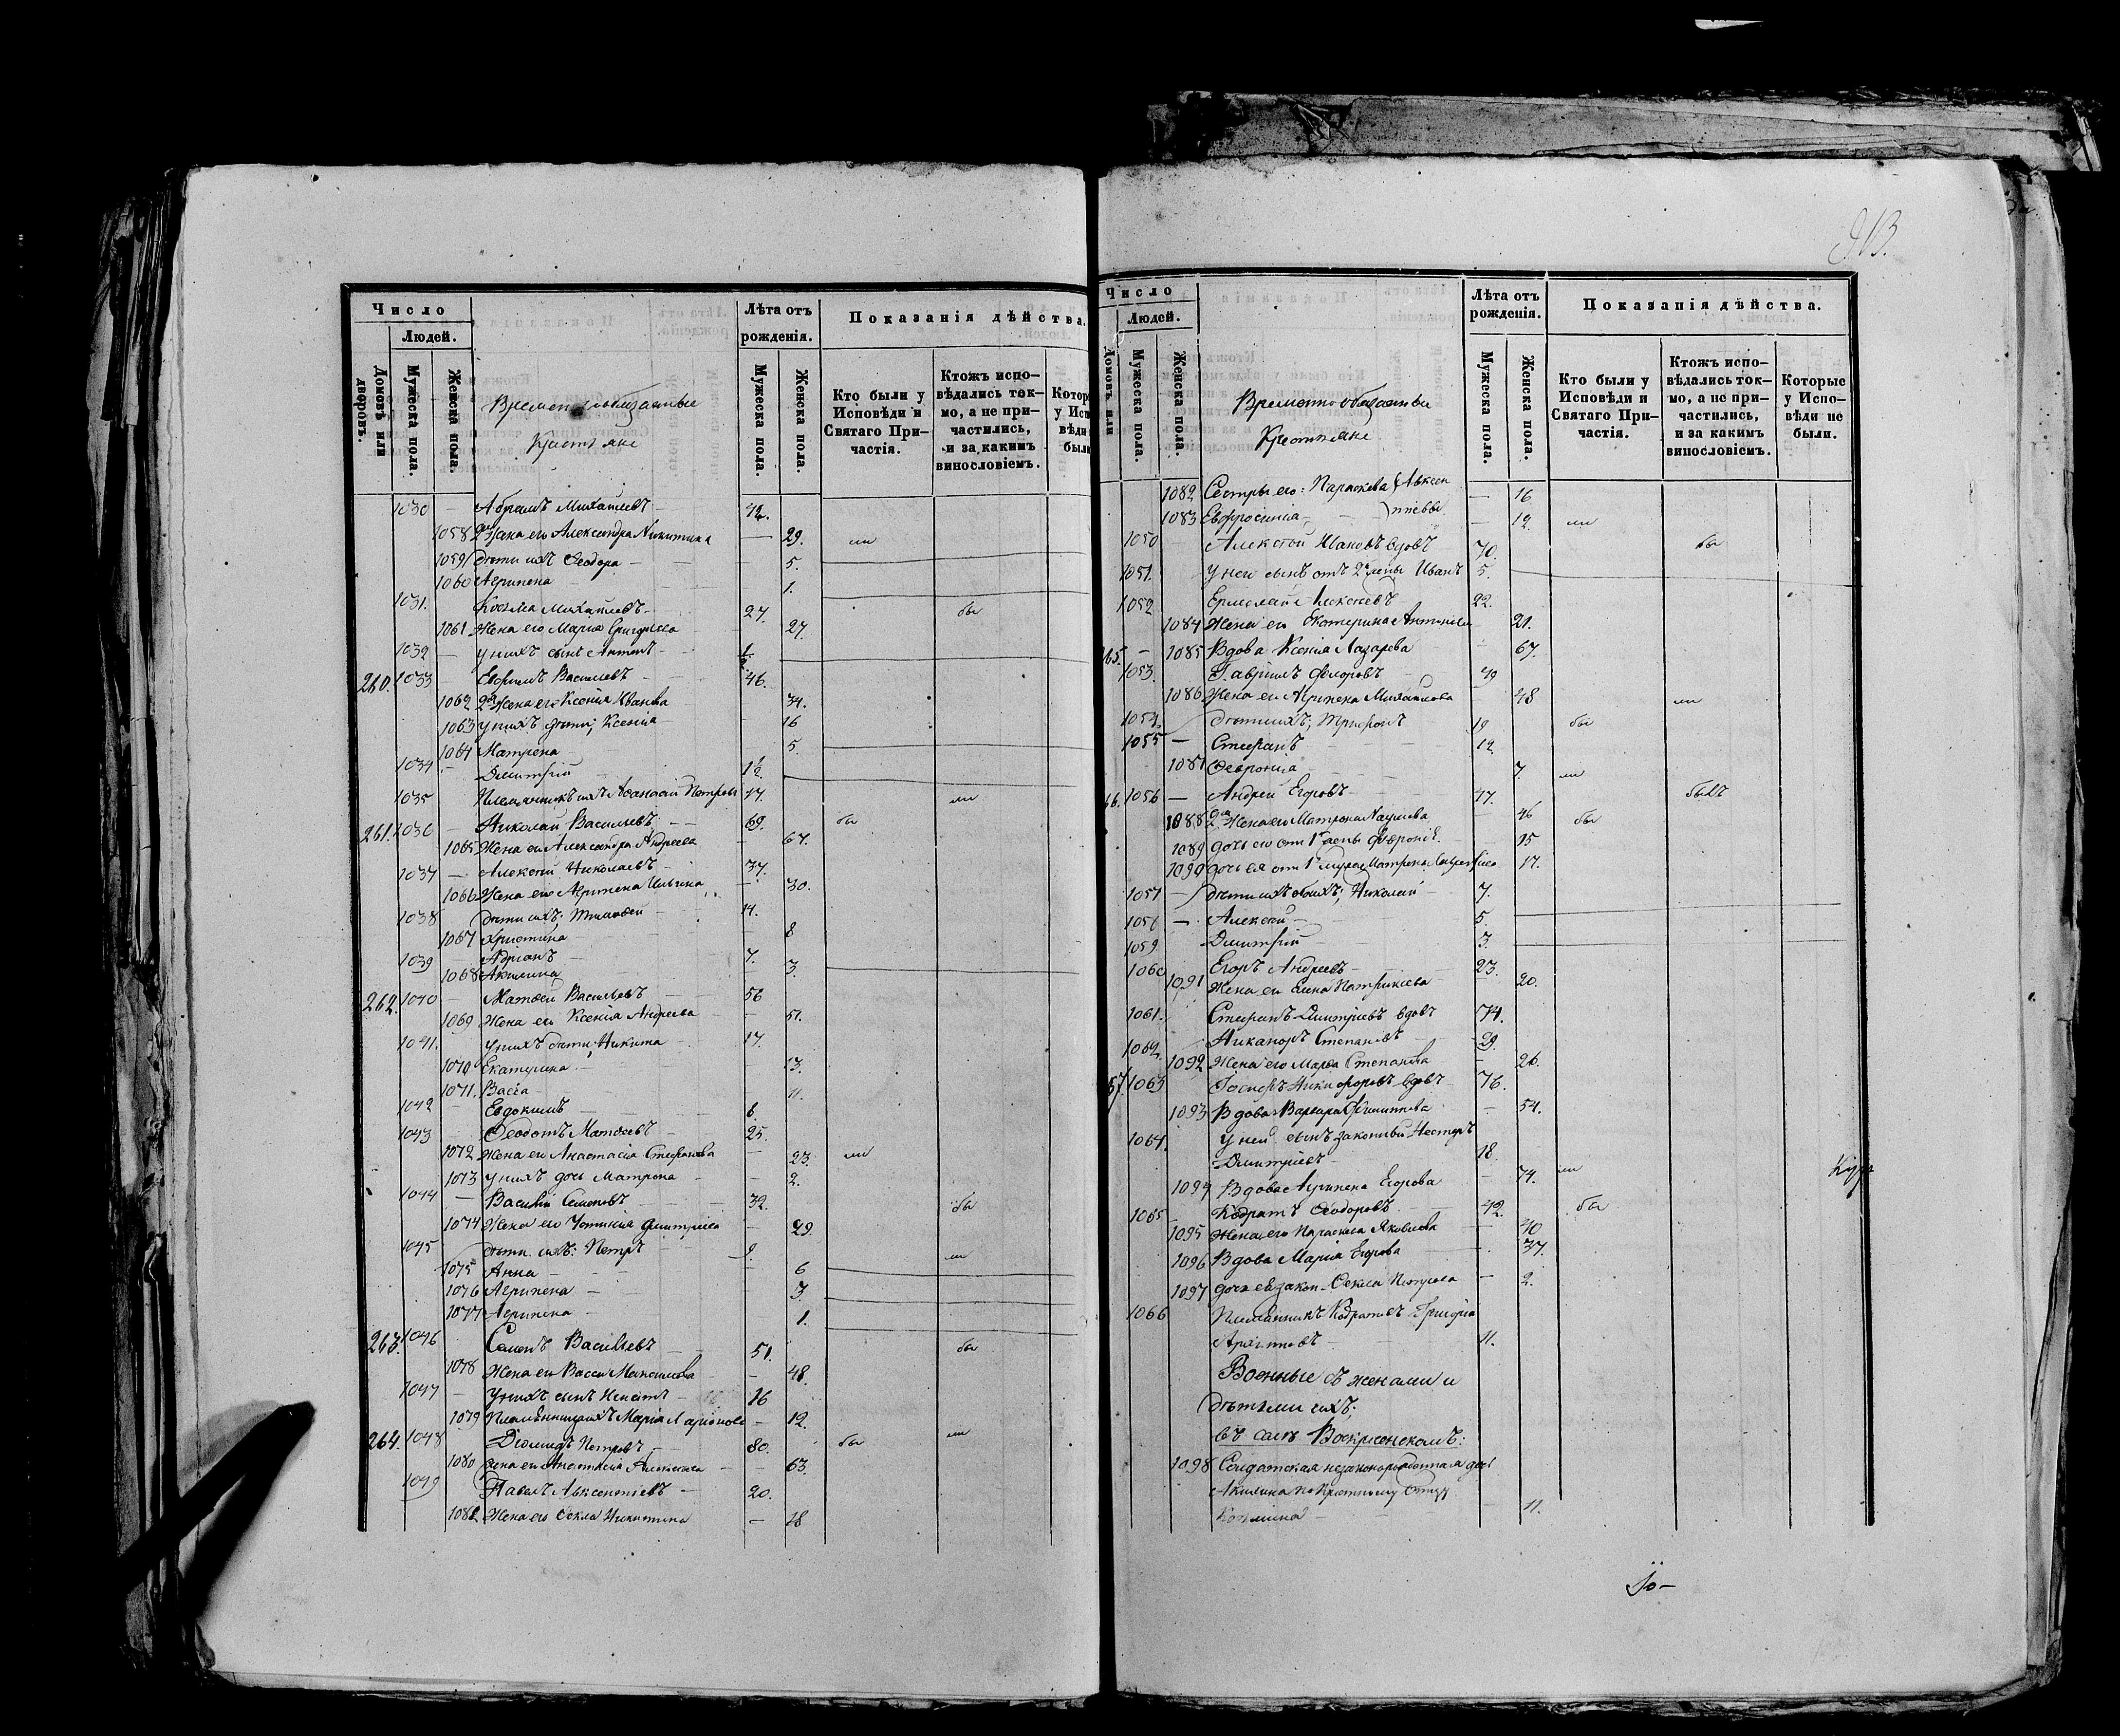 Число
Людей.
Домовъ или дворовъ.
Мужеска пола.
Женска пола.
Временнообязанные
Крестьяне
Лѣта отъ рожденія.
Мужеска пола.
Женска пола.
Показанія дѣйства.
Кто были у Исповѣди и Святаго Причастія.
Ктожъ исповѣдались токмо, а не причастились, и за какимъ винословіемъ.
1030 — Абрамъ Михайлевъ — 42.
1058 2я Жена его Александра Никитина — 29. ли
1059 Дѣти ихъ Ѳеодора — 5.
1060 Агрипена 1.
1031. Козьма Михайлевъ — 27. бы
1061 Жена его Марія Григорьева 27.
1032 — У нихъ сынъ Антонъ — 1/2
260. 1033 — Евфимъ Васильевъ — 46.
1062 2я Жена его Ксенія Иванова 34.
1063 У нихъ дѣти; Ксенія — 16
1064 Матрена 5.
1034 — Дмитрій 1 1/2
1035 Племянникъ ихъ Аѳанасій Петровъ 17. ли
261. 1036 — Николай Васильевъ — 69. бы
1065 Жена его Александра Андреева — 67.
1037 — Алексѣй Николаевъ — 37.
1066 Жена его Агрипена Ильина — 30.
1038 Дѣти ихъ: Тимоѳей — 14.
1067 Христина — 8
1039 — Адріанъ — 7.
1068 Акилина — 3.
262. 1040 — Матѳей Васильевъ — 56
1069 Жена его Ксенія Андреева — 51.
1041. У нихъ дѣти; Никита — 17.
1070 Екатерина — 13.
1071. Васса — 11.
1042 — Евдокимъ — 6.
1043 Ѳеодотъ Матѳеевъ — 25.
1072 Жена его Анастасія Стефанова — 23. ли
1073 У нихъ дочь Матрона — 2.
1044 — Василій Семеновъ — 32. бы
1074 Жена его Устинія Дмитріева — 29.
1045 Дѣти ихъ: Петръ — 9. ли
1075 Анна — 6
1076 Агрипена — 3.
1077 Агрипена — 1.
263. 1046 Семенъ Васильевъ — 51. бы
1078 Жена его Васса Максимова — 48.
1047 — У нихъ сынъ Игнатъ — 16
1079 Племянница ихъ Марія Ларіонова — 12.
264. 1048 Діомидъ Петровъ — 80. бы ли
1080 Жена его Анастасія Алексѣева — 63.
1049 Павелъ Авксентіевъ — 20.
1081 Жена его Ѳекла Никитина — 18
Число
Людей.
Домовъ или
Мужеска пола.
Женска пола.
Временнообязанные
Крестьяне
Лѣта отъ рожденія.
Мужеска пола.
Женска пола.
Показанія дѣйства.
Кто были у Исповѣди и Святаго Причастія.
Ктожъ исповѣдались токмо, а не причастились, и за какимъ винословіемъ.
Которые у Исповѣди не были.
1082 Сестры его: Параскева } Авксен — 16
1083 Евфросинія — } тіевы — 12. ли
1050 Алексѣй Ивановъ вдовъ 70. бы
1051. У него сынъ отъ 2й жены Иванъ 5.
1052 Ермолай Алексѣевъ 22.
1084 Жена его Екатерина Антонова 21.
1085 Вдова Ксенія Лазарева 67.
1053. Гавріилъ Федоровъ — 49
1086 Жена его Агрипена Михайлова 48 ли
1054. Дѣти ихъ; Трифонъ 19 бы
1055 — Стефанъ 12.
1087 Ѳевронія 7. ли
1056 — Андрей Егоровъ — 47. быхъ
1088 2я Жена его Матрона Наумова — 46 бы
1089 Дочь его отъ 1й жены Ѳевронія. 15
1090 Дочь ея отъ 1го мужа Матрона 17.
1057 — Дѣти ихъ обоихъ; Николай 7.
1058 — Алексѣй — 5.
1059 Дмитрій 3.
1060 Егоръ Андреевъ — 23.
1091 Жена его Елена Патрикіева 20.
1061. Стефанъ Дмитріевъ вдовъ 74.
1062. Никаноръ Степановъ 29.
1092 Жена его Марѳа Степанова — 26.
1063 Іосифъ Никифоровъ вдовъ 76.
1093 Вдова Варвара Филиппова — 54.
1064. У ней сынъ законный Несторъ
Дмитріевъ — 18.
1094 Вдова Агрипена Егорова — 74. ли
1065 Кодратъ Ѳеодоровъ — 42. бы
1095 Жена его Параскева Яковлева 40
1096 Вдова Марія Егорова — 37.
1097 Дочь ея закон. Ѳекла Петрова — 2.
1066 Племянникъ Кодратовъ Григорій
Архиповъ — 11.
Военные съ женами и
дѣтьми ихъ;
въ селѣ Воскресенскомъ:
1098 Солдатская незаконорожденная дочь
Акилина по крестному отцу
Козьмина — 11.